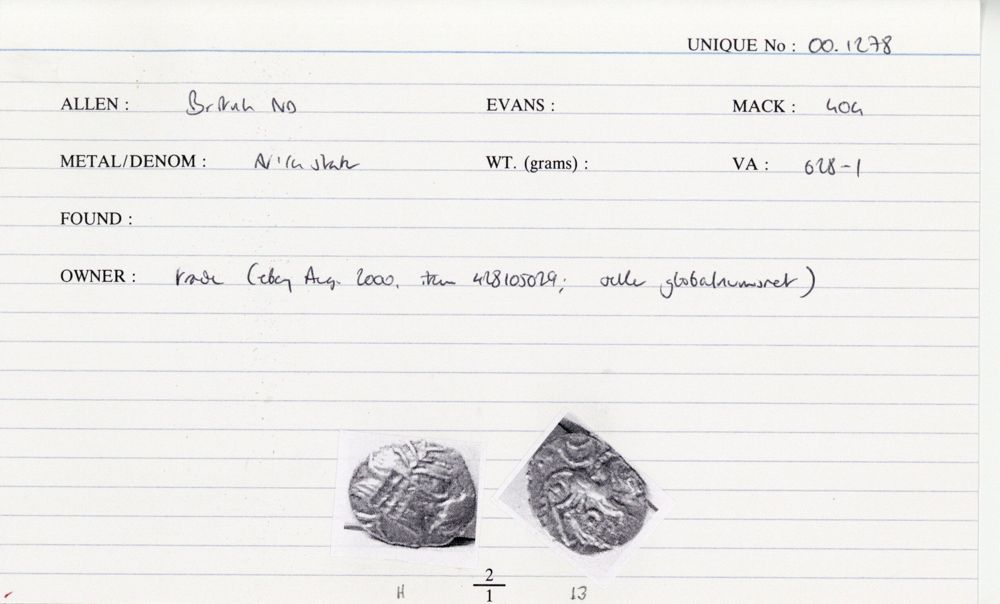 UNIQUE No : 00.1278
ALLEN : British ND EVANS : MACK : 404
METAL/DENOM : stater WT. (grams) : VA : 628-1
FOUND :
OWNER : trade (ebay Aug. 2000, item 428105029; seller globalnumisnet)
2
H 13
1